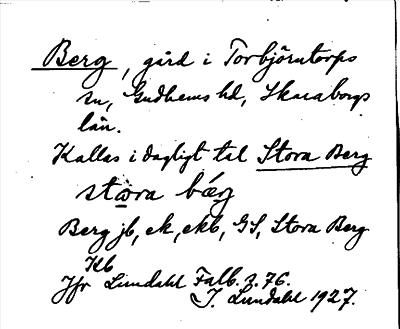 Berg, gård i Torbjörntorps
sn, Gudhems hd, Skaraborgs
län.
Kallas i dagligt tal Stora Berg
stωra bærg
Berg jb, ek, ekb, GS, Stora Berg
Kb
Jfr Lundahl Falb. s. 76.
I. Lundahl 1927.